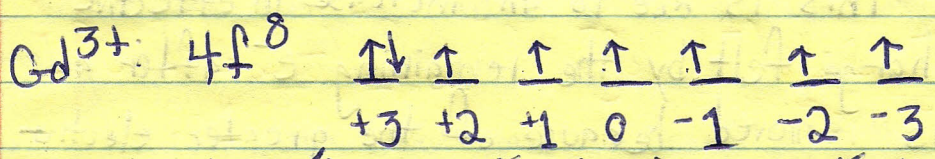 Gd³⁺: 4f⁸ ↑↓ ↑ ↑ ↑ ↑ ↑ ↑
+3 +2 +1 0 -1 -2 -3